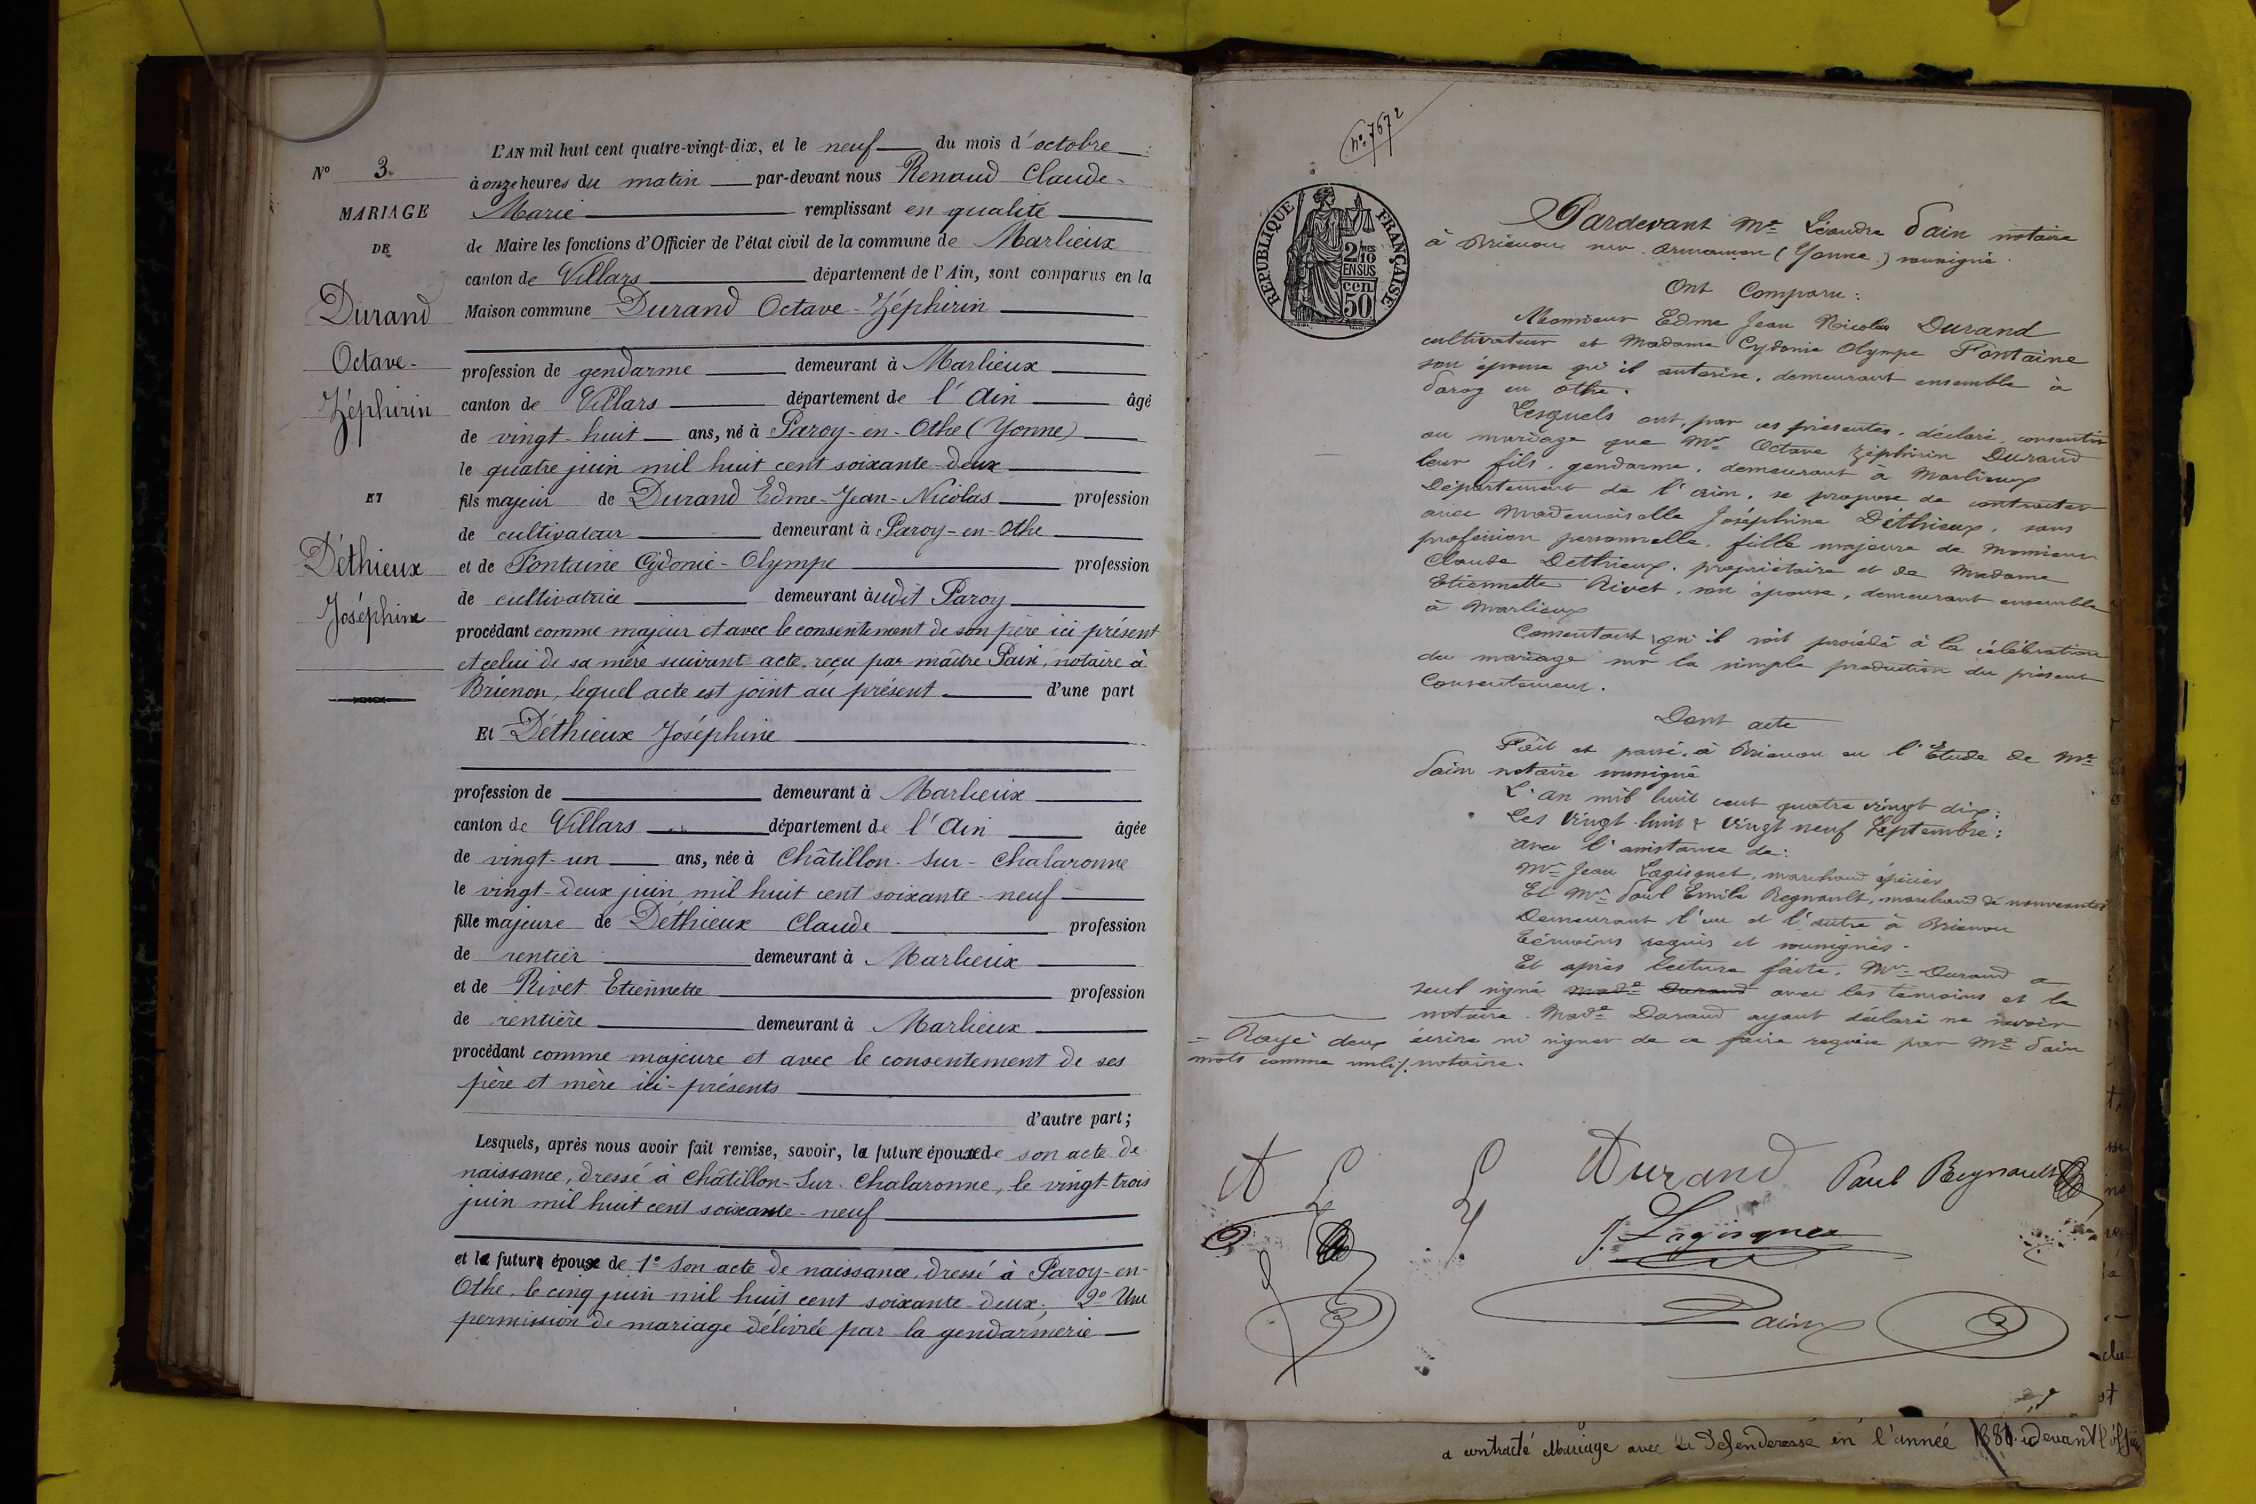 L'AN mil huit cent quatre-vingt-dix, et le neuf du mois d'octobre
N° 3
à onze heures du matin par-devant nous Renaud Claude-
MARIAGE
Marie remplissant en qualité
DE
de Maire les fonctions d'Officier de l'état civil de la commune de Marlieux
canton de Villars département de l'Ain, sont comparus en la
Durand
Maison commune Durand Octave-Zéphirin
Octave-
profession de gendarme demeurant à Marlieux
Zéphirin
canton de Villars département de l'Ain âgé
de vingt-huit ans, né à Paroy-en-Othe (Yonne)
le quatre juin mil huit cent soixante-deux
ET
fils majeur de Durand Edme-Jean-Nicolas profession
de cultivateur demeurant à Paroy-en-Othe
Déthieux
et de Fontaine Cydonie-Olympe profession
Joséphine
de cultivatrice demeurant audit Paroy
procédant comme majeur et avec le consentement de son père ici présent
et celui de sa mère suivant acte, reçu par maître Pain, notaire à
Briénon, lequel acte est joint au présent d'une part
Et Déthieux Joséphine
profession de demeurant à Marlieux
canton de Villars département de l'Ain âgée
de vingt-un ans, née à Châtillon-sur-Chalaronne
le vingt-deux juin mil huit cent soixante-neuf
fille majeure de Déthieux Claude profession
de rentier demeurant à Marlieux
et de Rivet Etiennette profession
de rentière demeurant à Marlieux
procédant comme majeure et avec le consentement de ses
père et mère ici-présents
d'autre part;
Lesquels, après nous avoir fait remise, savoir, la future épouse de son acte de
naissance, dressé à Châtillon-Sur-Chalaronne, le vingt-trois
juin mil huit cent soixante-neuf
et le futur époux de 1° Son acte de naissance, dressé à Paroy-en-
Othe, le cinq juin mil huit cent soixante-deux; 2° Une
permission de mariage délivrée par la gendarmerie
n° 7672
RÉPUBLIQUE FRANÇAISE
2/10
EN SUS
cen
50
Pardevant Me Léandre Pain notaire
à Brienon sur Armançon (Yonne) soussigné.
Ont Comparu:
Monsieur Edme Jean Nicolas Durand
cultivateur et Madame Cydonie Olympe Fontaine
son épouse qu'il autorise, demeurant ensemble à
Paroy en Othe.
Lesquels ont, par ces présentes, déclaré consentir
au mariage que Mr Octave Zéphirin Durand
leur fils, gendarme, demeurant à Marlieux
Département de l'Ain, se propose de contracter
avec Mademoiselle Joséphine Déthieux, sans
profession personnelle, fille majeure de Monsieur
Claude Dethieux, propriétaire et de Madame
Etiennette Rivet, son épouse, demeurant ensemble
à Marlieux
Consentant qu'il soit procédé à la célébration
du mariage sur la simple production du présent
Consentement.
Dont acte
Fait et passé, à Brienon en l'Etude de Me
Pain notaire soussigné
L'an mil huit cent quatre vingt dix;
Les Vingt-huit & Vingt neuf Septembre;
avec l'assistance de:
Mr Jean Lagisquet, marchand épicier
Et Mr Paul Emile Regnault, marchand de nouveautés
Demeurant l'un et l'autre à Brienon
témoins requis et soussignés.
Et après lecture faite, Mr Durand a
seul signé Made Durand avec les témoins et le
notaire. Made Durand ayant déclaré ne savoir
Rayé deux écrire ni signer de ce faire requise par Me Pain
mots comme nuls. notaire.
Durand Paul Regnault
J. Lagisquet
Pain
a contracté Mariage avec la défenderesse en l'année